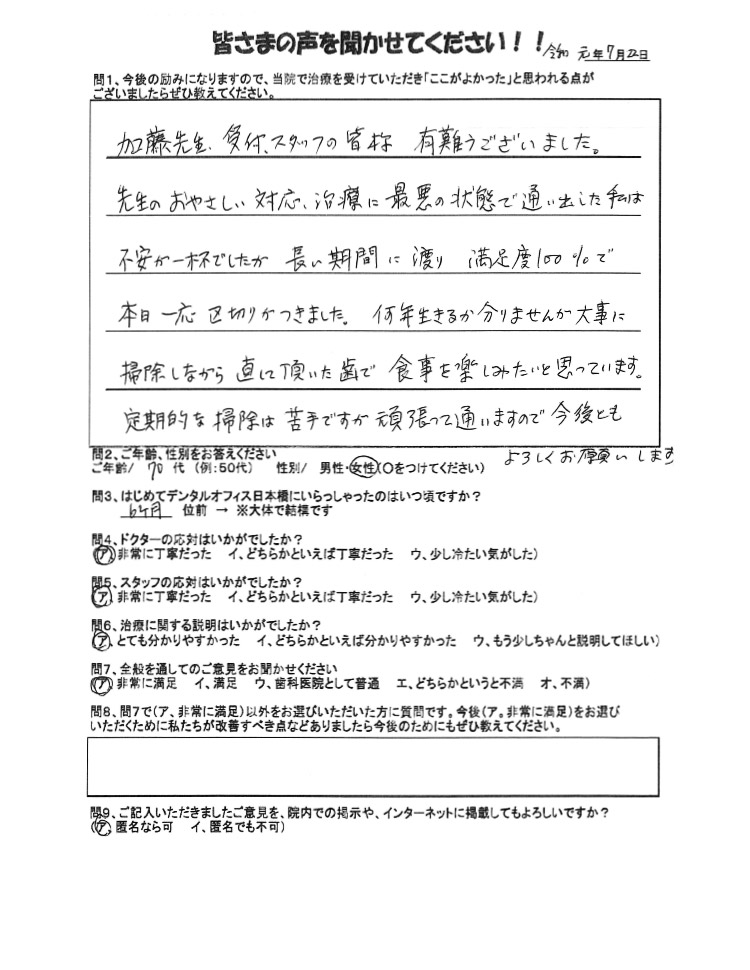 皆さまの声を聞かせてください！！ 令和 元年7月22日
問1、今後の励みになりますので、当院で治療を受けていただき「ここがよかった」と思われる点が
ございましたらぜひ教えてください。
加藤先生、受付、スタッフの皆様 有難うございました。
先生のおやさしい対応、治療に最悪の状態で通い出した私は
不安が一杯でしたが 長い期間に渡り 満足度100％で
本日一応区切りがつきました。 何年生きるか分りませんが大事に
掃除しながら直して頂いた歯で 食事を楽しみたいと思っています。
定期的な掃除は苦手ですが頑張って通いますので今後とも
よろしくお願いします
問2、ご年齢、性別をお答えください
ご年齢/ 70 代 (例:50代) 性別/ 男性・女性(〇をつけてください)
問3、はじめてデンタルオフィス日本橋にいらっしゃったのはいつ頃ですか？
6ヶ月 位前 → ※大体で結構です
問4、ドクターの応対はいかがでしたか？
(ア、非常に丁寧だった イ、どちらかといえば丁寧だった ウ、少し冷たい気がした)
問5、スタッフの応対はいかがでしたか？
(ア、非常に丁寧だった イ、どちらかといえば丁寧だった ウ、少し冷たい気がした)
問6、治療に関する説明はいかがでしたか？
(ア、とても分かりやすかった イ、どちらかといえば分かりやすかった ウ、もう少しちゃんと説明してほしい)
問7、全般を通してのご意見をお聞かせください
(ア、非常に満足 イ、満足 ウ、歯科医院として普通 エ、どちらかというと不満 オ、不満)
問8、問7で(ア、非常に満足)以外をお選びいただいた方に質問です。今後(ア。非常に満足)をお選び
いただくために私たちが改善すべき点などありましたら今後のためにもぜひ教えてください。
問9、ご記入いただきましたご意見を、院内での掲示や、インターネットに掲載してもよろしいですか？
(ア、匿名なら可 イ、匿名でも不可)